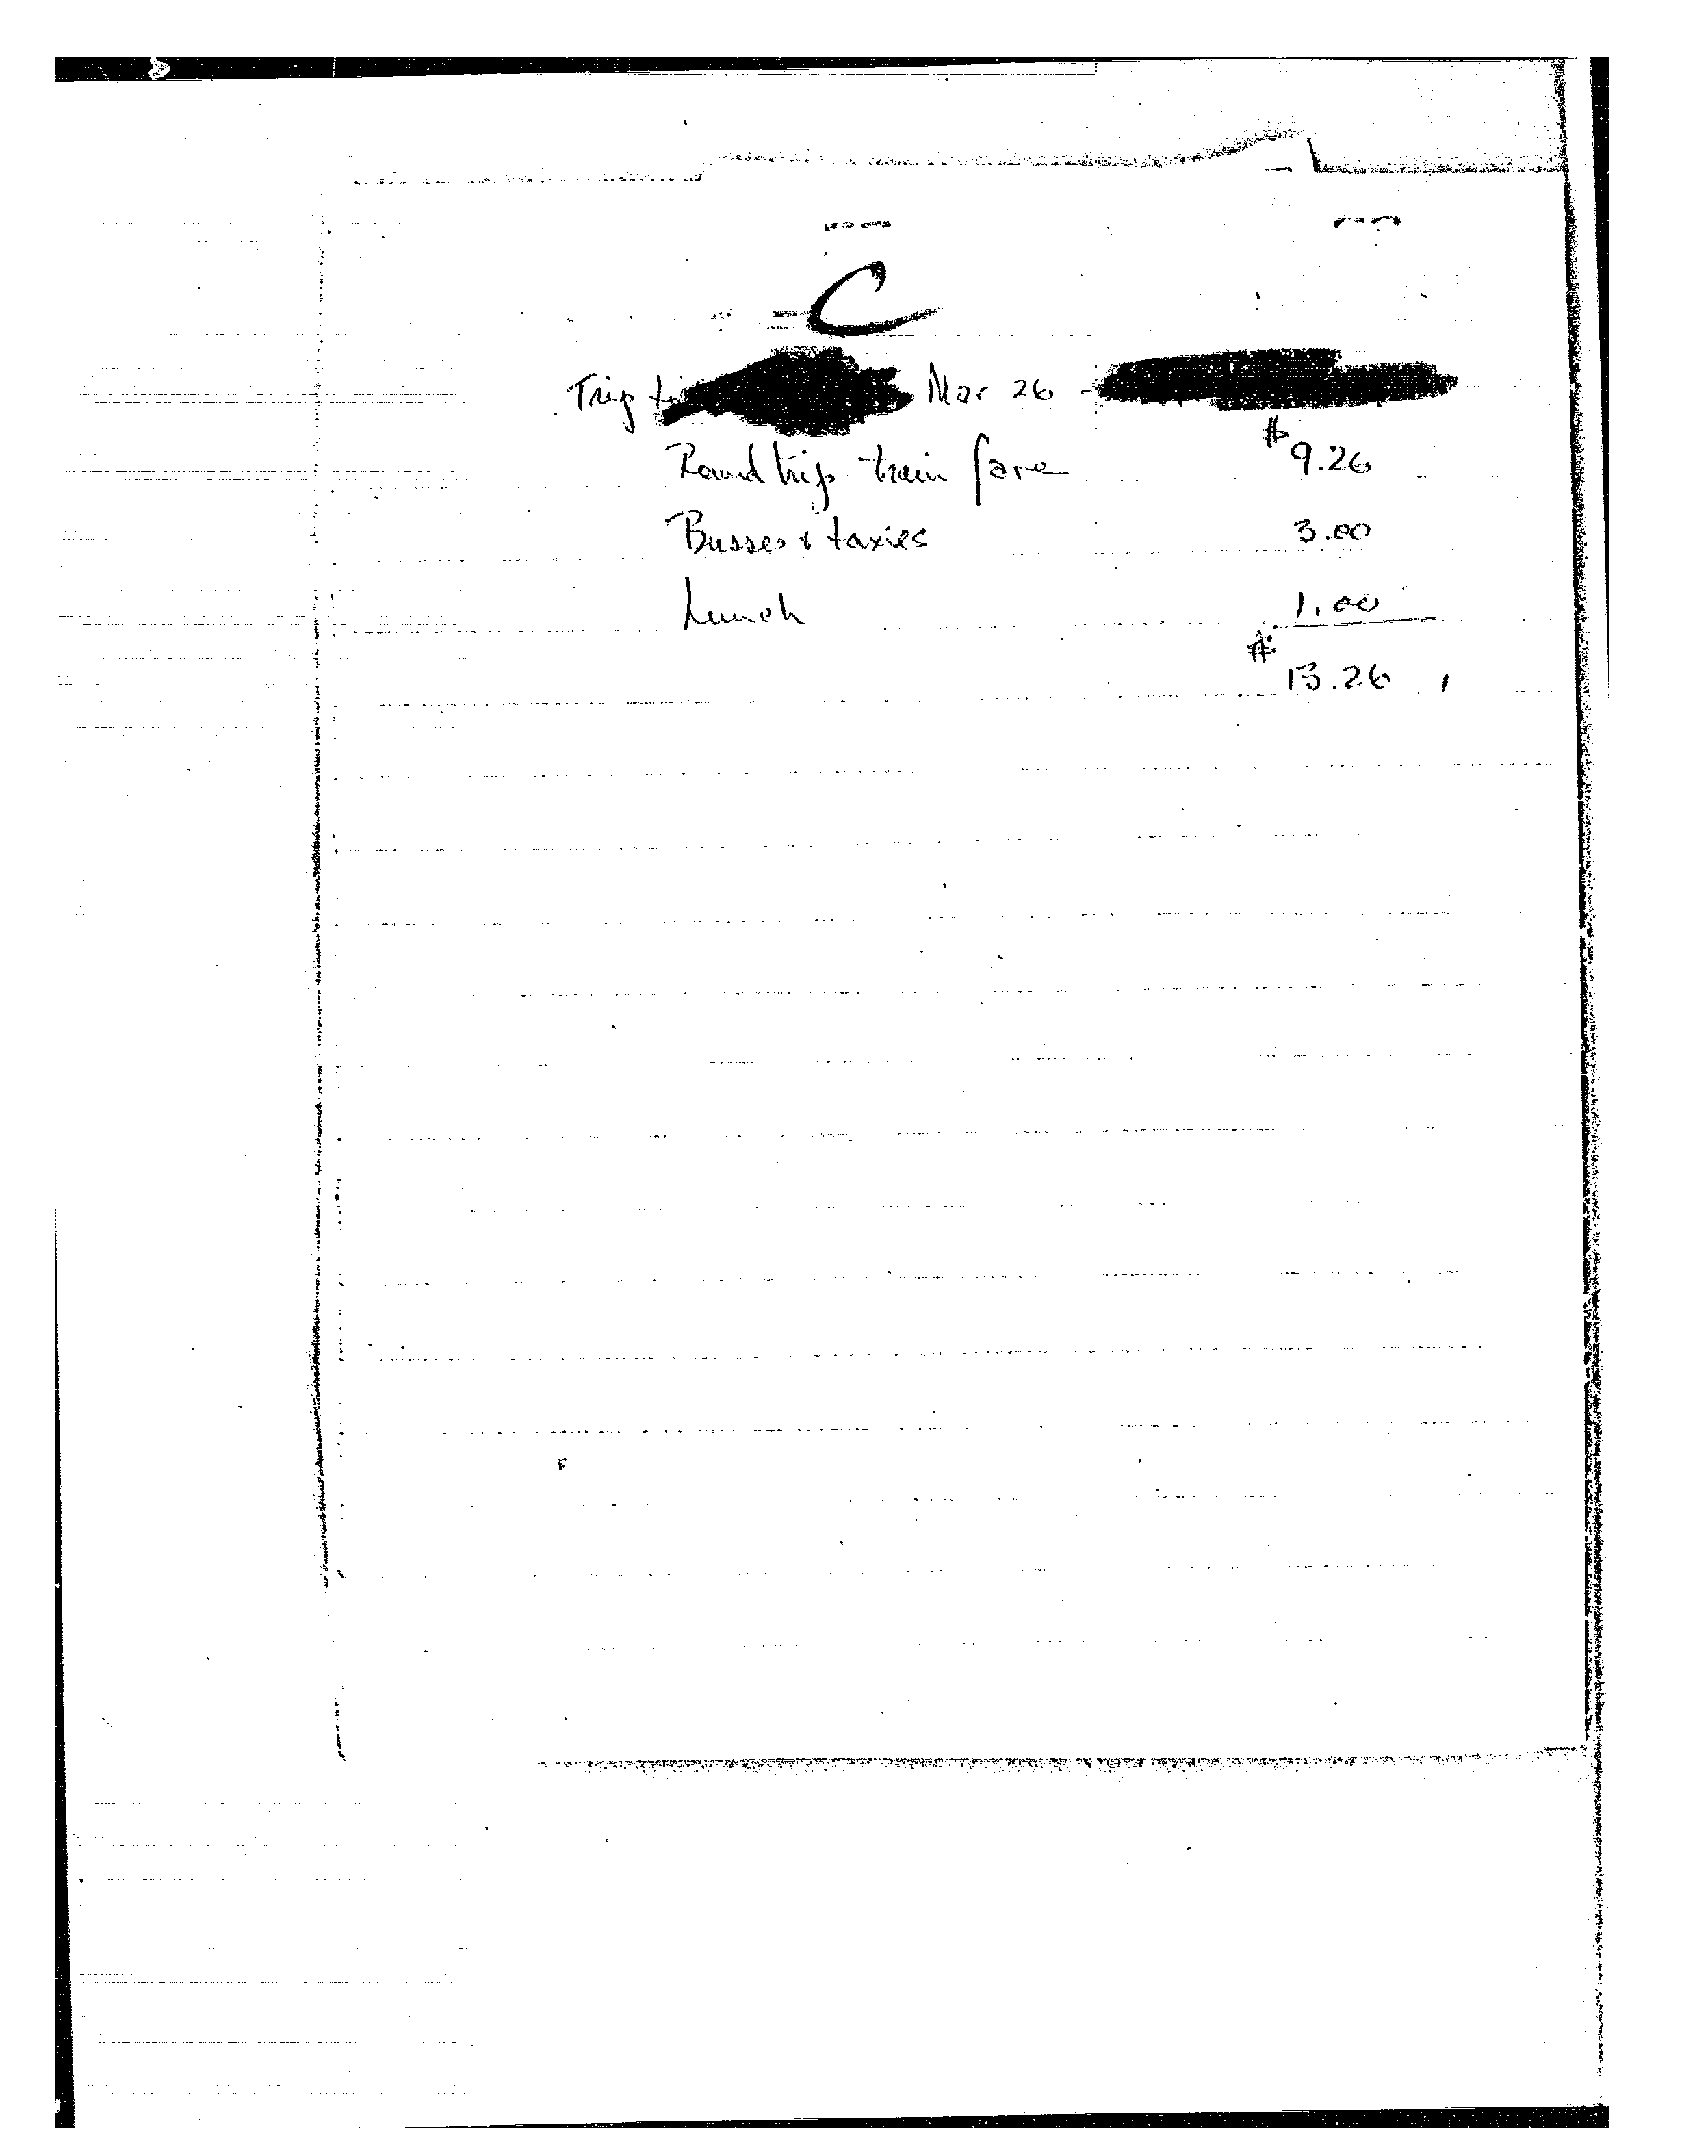 C
Trip to Mar 26 -
Round trip train fare $9.26
Busses & taxies 3.00
Lunch 1.00
$13.26